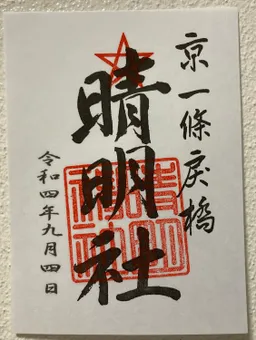 京一條戻橋
晴明社
令和四年九月四日